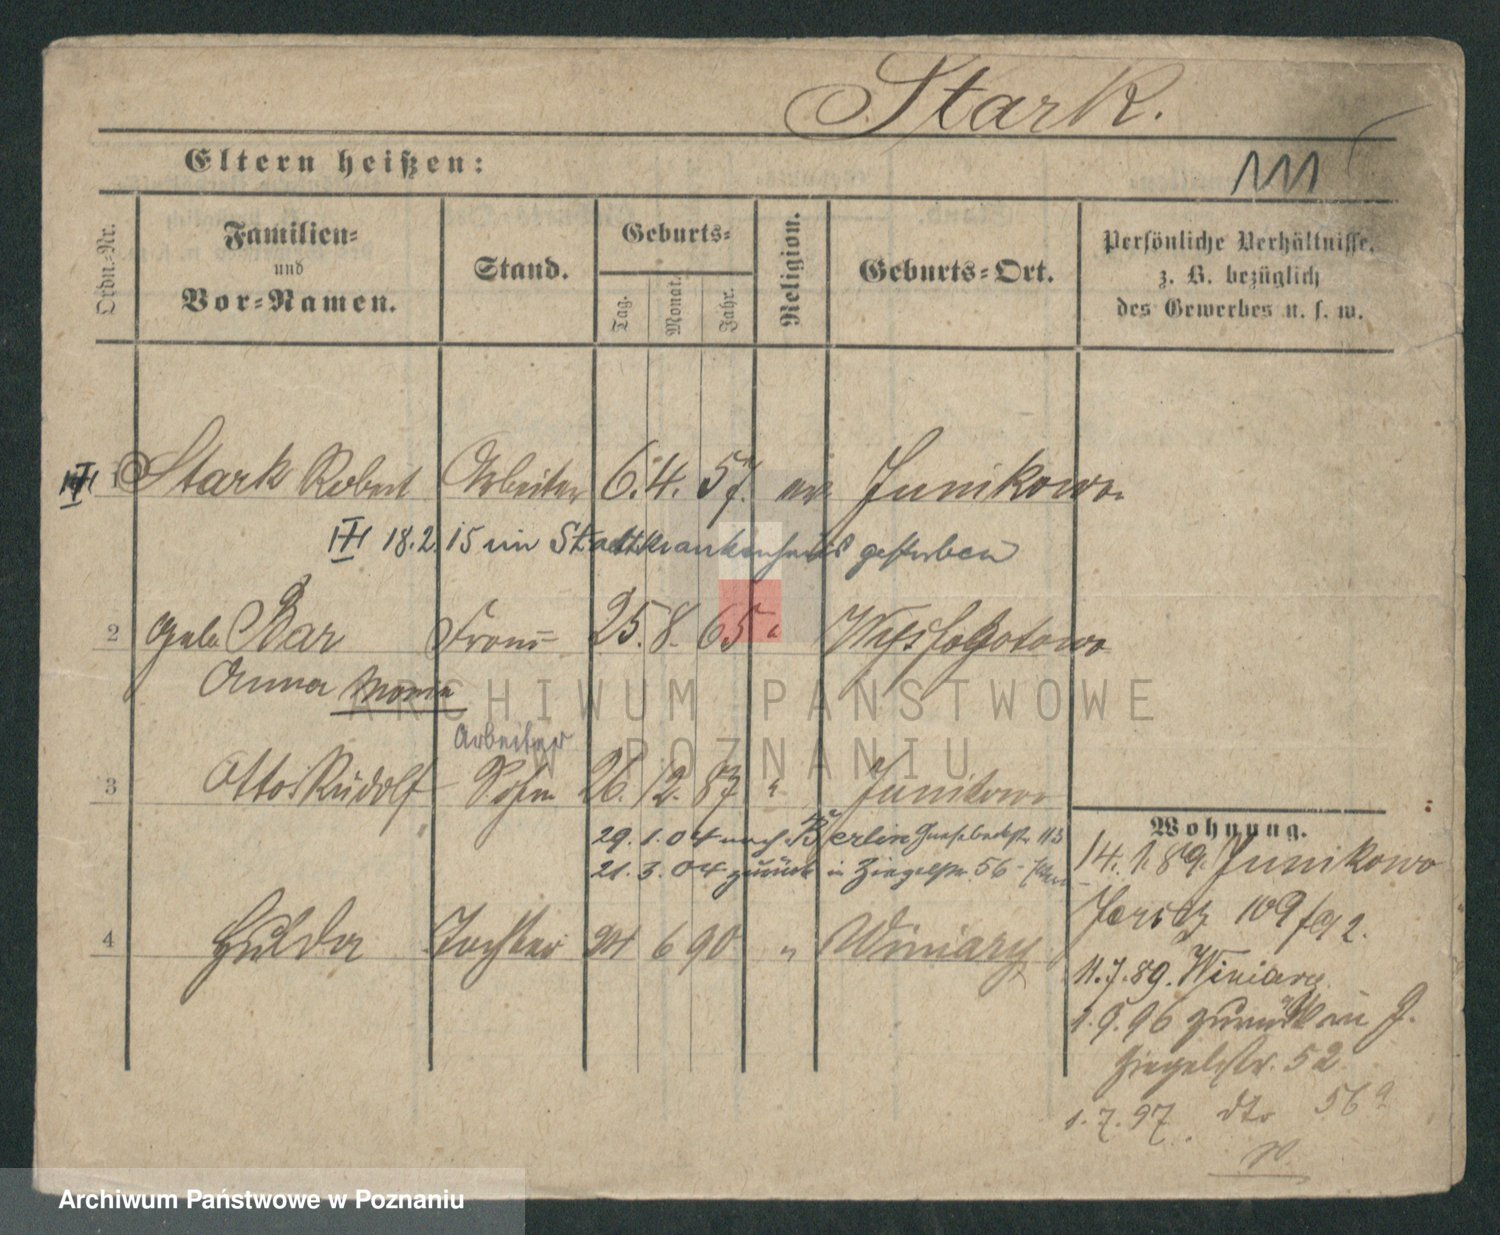 Stark.
Eltern heißen:
Ordn.-Nr.
Familien-
und
Vor-Namen.
Stand.
Geburts-
Tag.
Monat.
Jahr.
Religion.
Geburts-Ort.
Persönliche Verhältnisse,
z. B. bezüglich
des Gewerbes u. s. w.
1 Stark Robert Arbeiter 6. 4. 57. ev. Junikowo
18.2.15 im Stadtkrankenhaus gestorben
2 geb. Bar Frau 25. 8. 65 " 
Anna Maria
Arbeiter
3 Otto Rudolf Sohn 26. 12. 87 " Junikowo
29. 1. 04 nach Berlin 113
21. 3. 04 zurück in Ziegelstr. 56
4 Hulda Tochter 6 90 " Winiary
Wohnung.
14. 1. 89. Junikowo
Jersitz 109
11.7.89. Winiary
1. 9. 96 zurück in J.
Ziegelstr. 52
1. 7. 97. dto 56a
ARCHIWUM PAŃSTWOWE
W POZNANIU
Archiwum Państwowe w Poznaniu